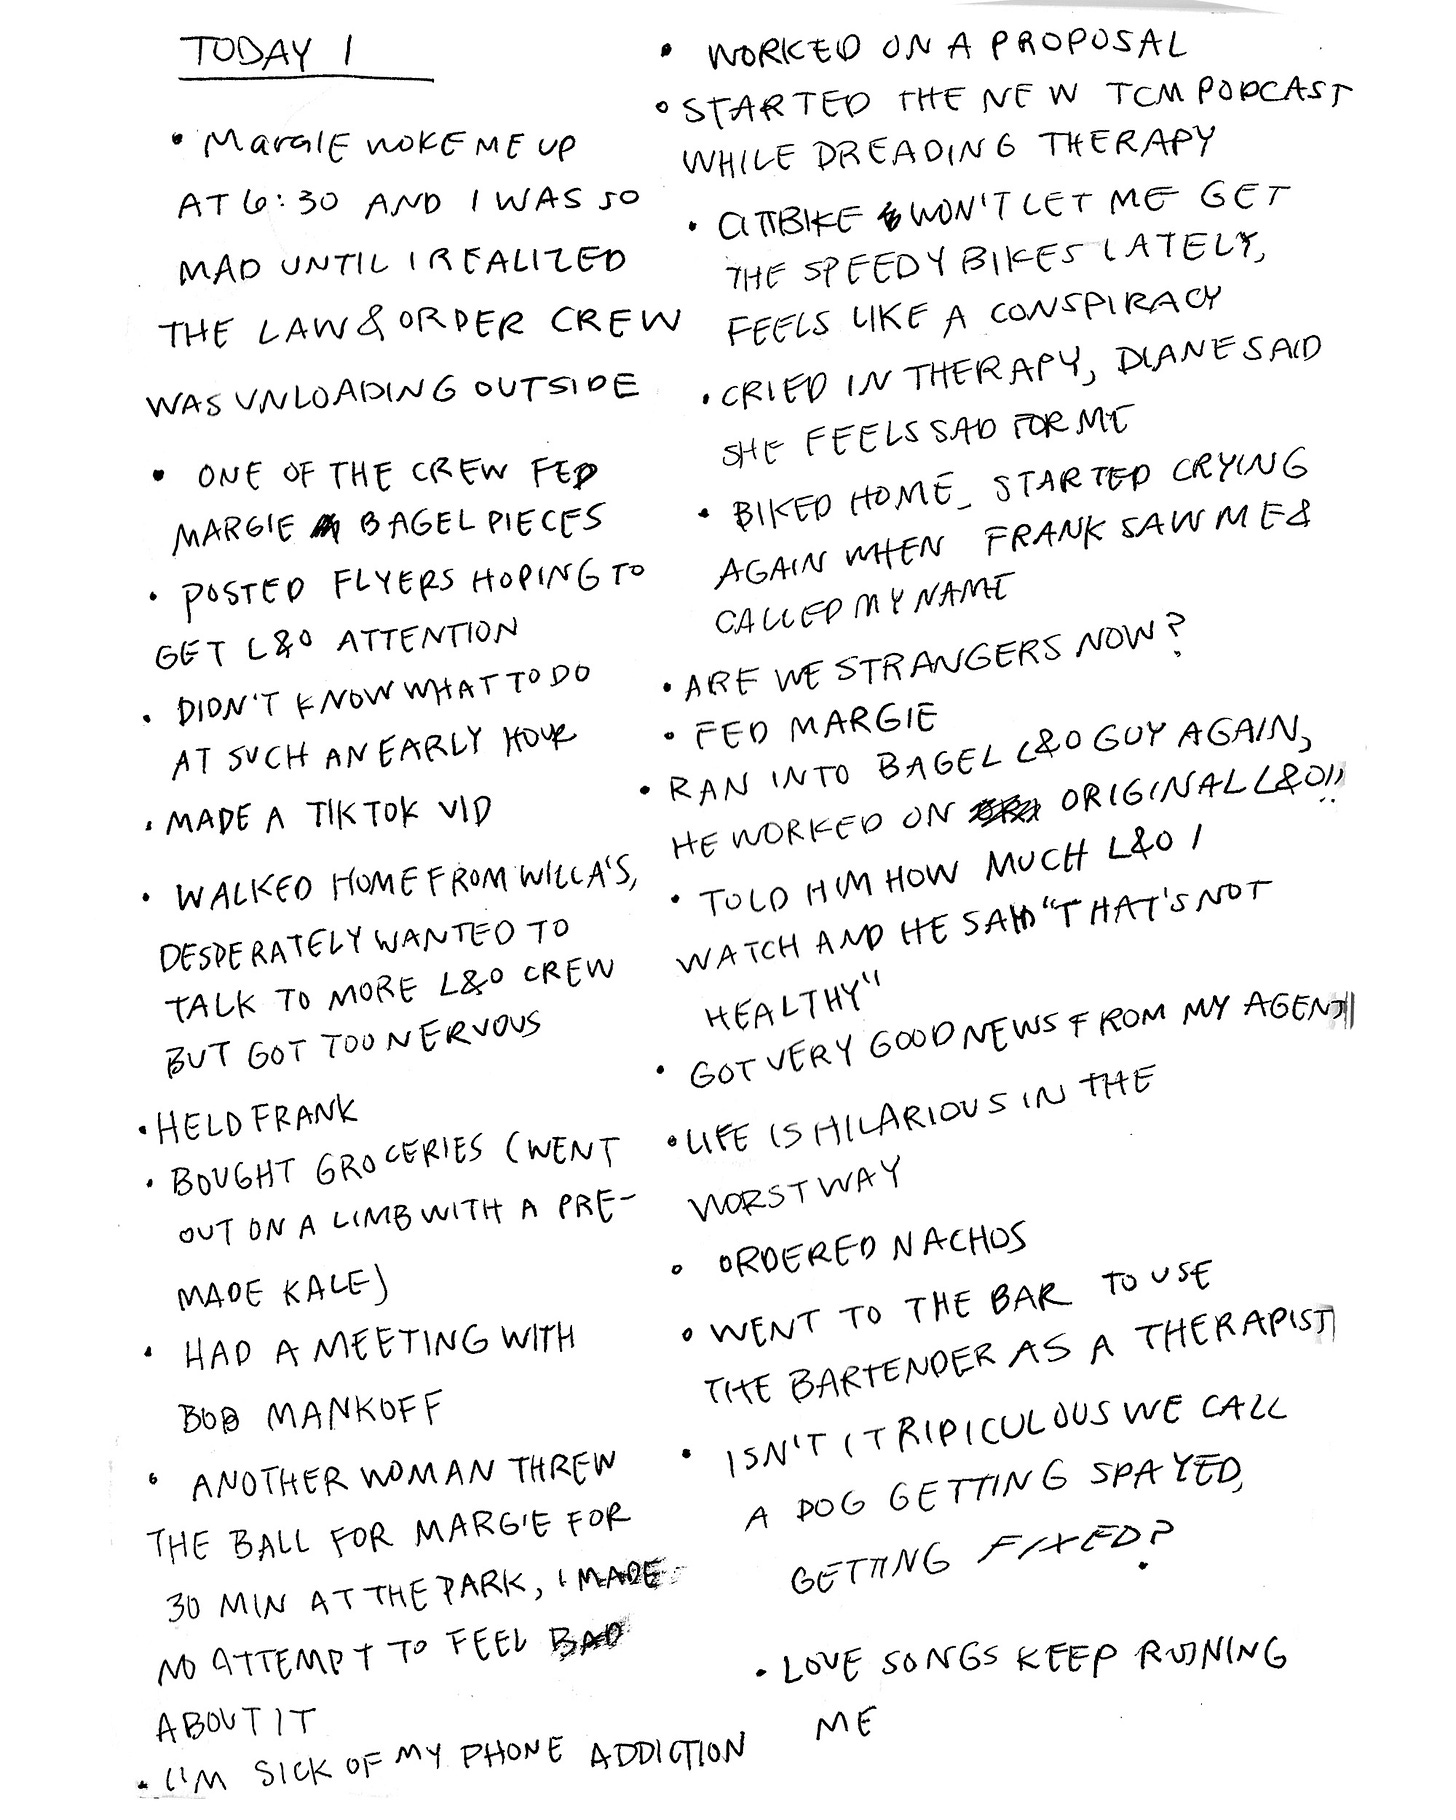 TODAY I
• MARGIE WOKE ME UP
AT 6:30 AND I WAS SO
MAD UNTIL I REALIZED
THE LAW & ORDER CREW
WAS UNLOADING OUTSIDE
• ONE OF THE CREW FED
MARGIE BAGEL PIECES
• POSTED FLYERS HOPING TO
GET L&O ATTENTION
• DIDN'T KNOW WHAT TO DO
AT SUCH AN EARLY HOUR
• MADE A TIKTOK VID
• WALKED HOME FROM WILLA'S,
DESPERATELY WANTED TO
TALK TO MORE L&O CREW
BUT GOT TOO NERVOUS
• HELD FRANK
• BOUGHT GROCERIES (WENT
OUT ON A LIMB WITH A PRE-
MADE KALE)
• HAD A MEETING WITH
BOB MANKOFF
• ANOTHER WOMAN THREW
THE BALL FOR MARGIE FOR
30 MIN AT THE PARK, I MADE
NO ATTEMPT TO FEEL BAD
ABOUT IT
• I'M SICK OF MY PHONE ADDICTION
• WORKED ON A PROPOSAL
• STARTED THE NEW TCM PODCAST
WHILE DREADING THERAPY
• CITIBIKE WON'T LET ME GET
THE SPEEDY BIKES LATELY,
FEELS LIKE A CONSPIRACY
• CRIED IN THERAPY, DIANE SAID
SHE FEELS SAD FOR ME
• BIKED HOME_ STARTED CRYING
AGAIN WHEN FRANK SAW ME &
CALLED MY NAME
• ARE WE STRANGERS NOW?
• FED MARGIE
• RAN INTO BAGEL L&O GUY AGAIN,
HE WORKED ON ORIGINAL L&O!!
• TOLD HIM HOW MUCH L&O I
WATCH AND HE SAID "THAT'S NOT
HEALTHY"
• GOT VERY GOOD NEWS FROM MY AGENT
• LIFE IS HILARIOUS IN THE
WORST WAY
• ORDERED NACHOS
• WENT TO THE BAR TO USE
THE BARTENDER AS A THERAPIST
• ISN'T IT RIDICULOUS WE CALL
A DOG GETTING SPAYED,
GETTING FIXED?
• LOVE SONGS KEEP RUINING
ME